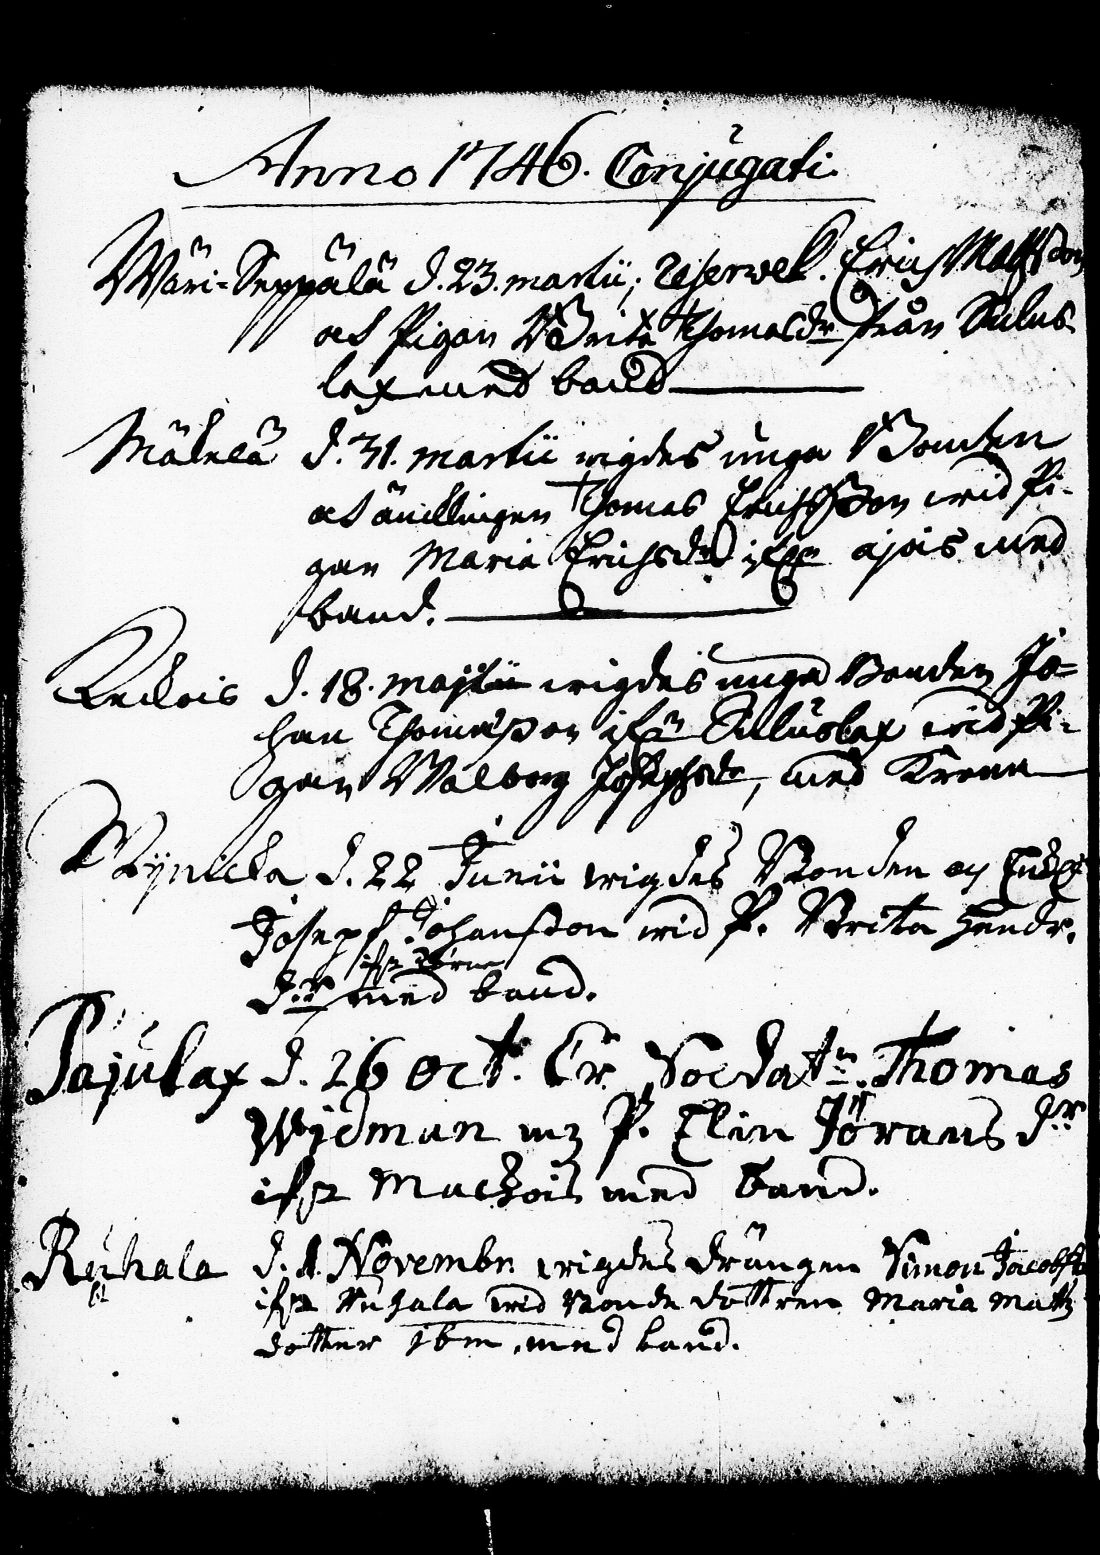 Anno 1746. Conjugati.
Wäri-Seppälä d. 23. martii; Reserwek. Erich Mattsson
Pigan Brita Thomasdr från Sulus
lax med band
Mäkelä d. 31. martii wigdes unga Bonden
Thomas Erichsson wid Pi-
gan Maria Erichsdr ajois med
band.
Keckois d. 18. maji wigdes unga Bonden Jo-
han Thomæsson Suluslax wid Pi-
gan Walborg Josephsdr, med Krona
Rynicka d. 22 Junii wigdes Bonden och
Joseph Johansson wid P. Brita Hendr.
dr med band.
Pajulax d. 26 Oct. Cr. Soldatn. Thomas
Widman m; P. Elin Jörans dr
ifr Muckois med band.
Ruhala d. 1. Novembr. wigdes drängen Simon Jacobss
ifr Ruhala wid bonde dottren Maria Matts
dotter ibm, med band.